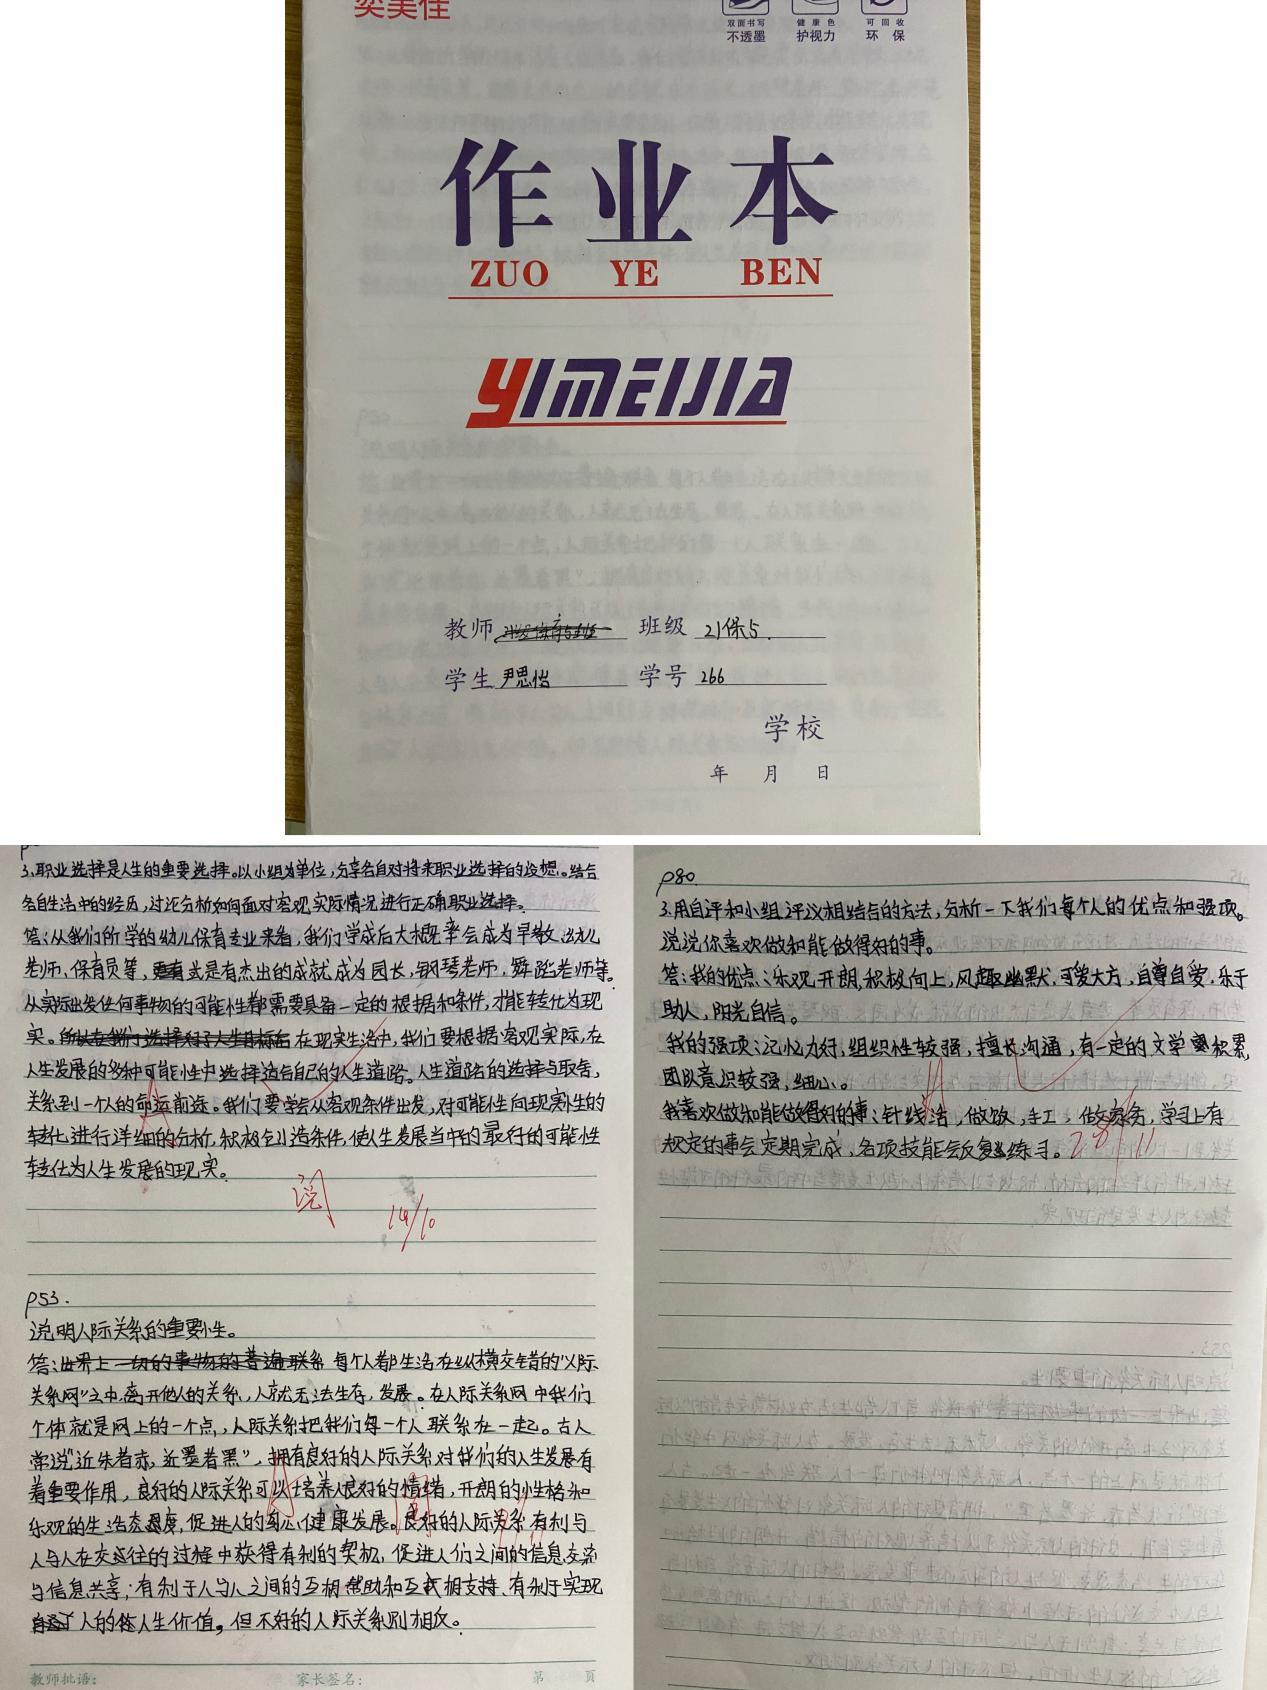 奕美佳
双面书写
不透墨
健康色
护视力
可回收
环 保
作业本
ZUO YE BEN
YIMEIJIA
教师 班级 21保5.
学生 尹思怡 学号 266
学校
年 月 日
3.职业选择是人生的重要选择。以小组为单位,分享各自对将来职业选择的设想。结合
各自生活中的经历,讨论分析如何面对客观实际情况进行正确职业选择。
答:从我们所学的幼儿保育专业来看,我们学成后大概率会成为早教、幼儿
老师、保育员等,或是有杰出的成就成为园长,钢琴老师,舞蹈老师等。
从实际出发任何事物的可能性都需要具备一定的根据和条件,才能转化为现
实。所以在我们选择好了人生目标后在现实生活中,我们要根据客观实际,在
人生发展的多种可能性中选择适合自己的人生道路。人生道路的选择与取舍,
关系到一个人的命运前途。我们要学会从客观条件出发,对可能性向现实性的
转化进行详细的分析,积极创造条件,使人生发展当中的最好的可能性
转化为人生发展的现实。
阅
14/10
P53.
说明人际关系的重要性。
答:世界上一切的事物的普遍联系每个人都生活在纵横交错的“人际
关系网”之中,离开他人的关系,人就无法生存,发展。在人际关系网中我们
个体就是网上的一个点,人际关系把我们每一个人联系在一起。古人
常说“近朱者赤,近墨者黑”,拥有良好的人际关系对我们的人生发展有
着重要作用,良好的人际关系可以培养人良好的情绪,开朗的性格和
乐观的生活态度,促进人的身心健康发展。良好的人际关系有利与
人与人在交往的过程中获得有利的契机,促进人们之间的信息交流
与信息共享;有利于人与人之间的互相帮助和互相支持、有利于实现
人的人生价值。但不好的人际关系则相反。
教师批语: 家长签名: 第 页
P80.
3.用自评和小组评议相结合的方法,分析一下我们每个人的优点和强项。
说说你喜欢做和能做得好的事。
答:我的优点:乐观开朗,积极向上,风趣幽默,可爱大方,自尊自爱,乐于
助人,阳光自信。
我的强项:记忆力好,组织性较强,擅长沟通,有一定的文学积累,
团队意识较强,细心。
我喜欢做和能做得好的事:针线活,做饭,手工,做家务,学习上有
规定的事会定期完成,各项技能会反复练习。
28/11